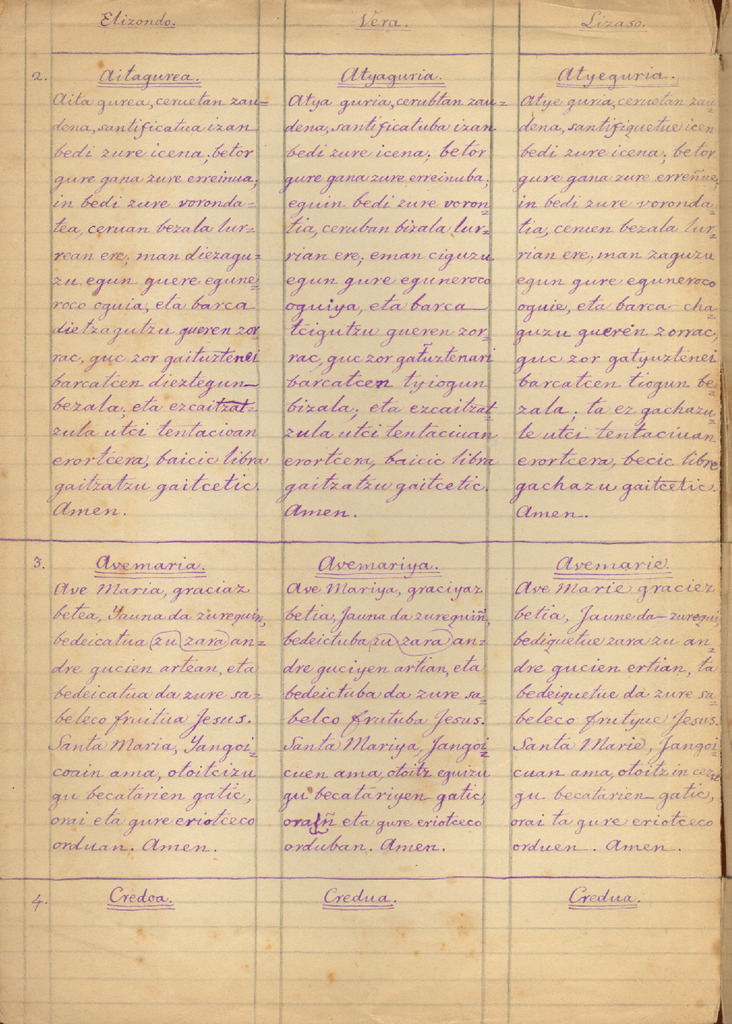 Elizondo.
Vera.
Lizaso.
2.
Aitagurea.
Aita gurea, ceruetan zau=
dena, santificatua izan
bedi zure icena; betor
gure gana zure erreinua;
in bedi zure voronda=
tea, ceruan bezala lur=
rean ere; man diezagu=
zu egun guere egune=
roco oguia; eta barca
dietzagutzu gueren zor
rac, guc zor gaituztenei
barcatcen dieztegun
bezala; eta ezcaitzat=
zula utci tentacioan
erortcera, baicic libra
gaitzatzu gaitcetic.
Amen.
Atyaguria.
Atya guria, cerubtan zau=
dena, santificatuba izan
bedi zure icena; betor
gure gana zure erreinuba;
eguin bedi zure voron=
tia, ceruban bizala lur=
rian ere; eman ciguzu
egun gure eguneroco
oguiya, eta barca
tcigutzu gueren zor=
rac, guc zor gatuztenari
barcatcen tyiogun
bizala; eta ezcaitzat=
zula utci tentaciuan
erortcera, baicic libra
gaitzatzu gaitcetic.
Amen.
Atyeguria.
Atye guria, ceruetan zau=
dena, santifiquetue icen
bedi zure icena; betor
gure gana zure erreñue;
in bedi zure voronda=
tia, ceruen bezala lur=
rian ere, man zaguzu
egun gure eguneroco
oguie, eta barca cha=
guzu guerén zorrac,
guc zor gatyuztenei
barcatcen tiogun be=
zala; ta ez gachazu=
le utci tentaciuan
erortcera, becic libre
gachazu gaitcetic.
Amen.
3.
Avemaria.
Ave Maria, graciaz
betea, Yauna da zurequin,
bedeicatua zu zara an=
dre gucien artean, eta
bedeicatua da zure sa=
beleco fruitua Jesus.
Santa Maria, Yangoi=
coain ama, otoitcizu
gu becatarien gatic,
orai eta gure eriotceco
orduan. Amen.
Avemariya.
Ave Mariya, graciyaz
betia, Jauna da zurequiñ,
bedeictuba zu zara an=
dre guciyen artian, eta
bedeictuba da zure sa=
belco frutuba Jesus.
Santa Mariya, Jangoi=
cuen ama, otoitz eguizu
gu becatariyen gatic,
oraiñ eta gure eriotceco
orduban. Amen.
Avemarie.
Ave Marie graciez
betia, Jaune da zurequi,
bediquetue zara zu an=
dre gucien ertian, ta
bedeiquetue da zure sa=
beleco frutyue Jesus.
Santa Marie, Jangoi=
cuan ama, otoitz in
gu becatarien gatic,
orai ta gure eriotceco
orduen. Amen.
4.
Credoa.
Credua.
Credua.